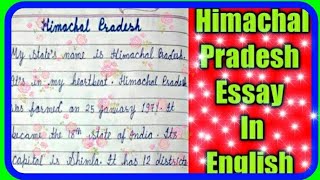 Himachal Pradesh
My State's name is Himachal Pradesh.
It's in my heartbeat. Himachal Pradesh
was formed on 25 january 1971. It
became the 18th State of India. Its
Capital is Shimla. It has 12 districts
Himachal
Pradesh
Essay
In
English